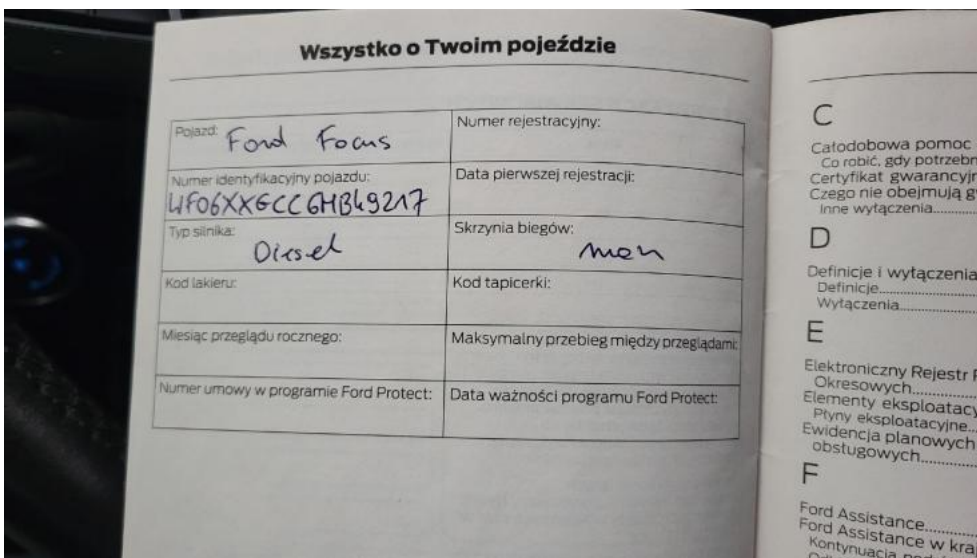 Wszystko o Twoim pojeździe
Pojazd: Ford Focus
Numer rejestracyjny:
Numer identyfikacyjny pojazdu:
WF06XXGCC6MB49217
Data pierwszej rejestracji:
Typ silnika:
Diesel
Skrzynia biegów:
man
Kod lakieru:
Kod tapicerki:
Miesiąc przeglądu rocznego:
Maksymalny przebieg między przeglądami:
Numer umowy w programie Ford Protect:
Data ważności programu Ford Protect:
C
Całodobowa pomoc
Co robić, gdy
Certyfikat
Czego nie obejmują
Inne wyłączenia
D
Definicje i wyłączenia
Definicje
Wyłączenia
E
Elektroniczny Rejestr
Okresowych
Elementy
Płyny eksploatacyjne
Ewidencja planowych
obsługowych
F
Ford Assistance
Ford Assistance w
Kontynuacja